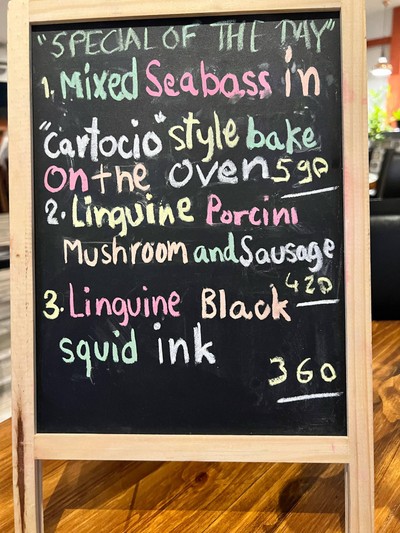 "SPECIAL OF THE DAY"
1. Mixed Seabass in
"Cartocio" style bake
On the oven 590
2. Linguine Porcini
Mushroom and Sausage
420
3. Linguine Black
squid ink
360